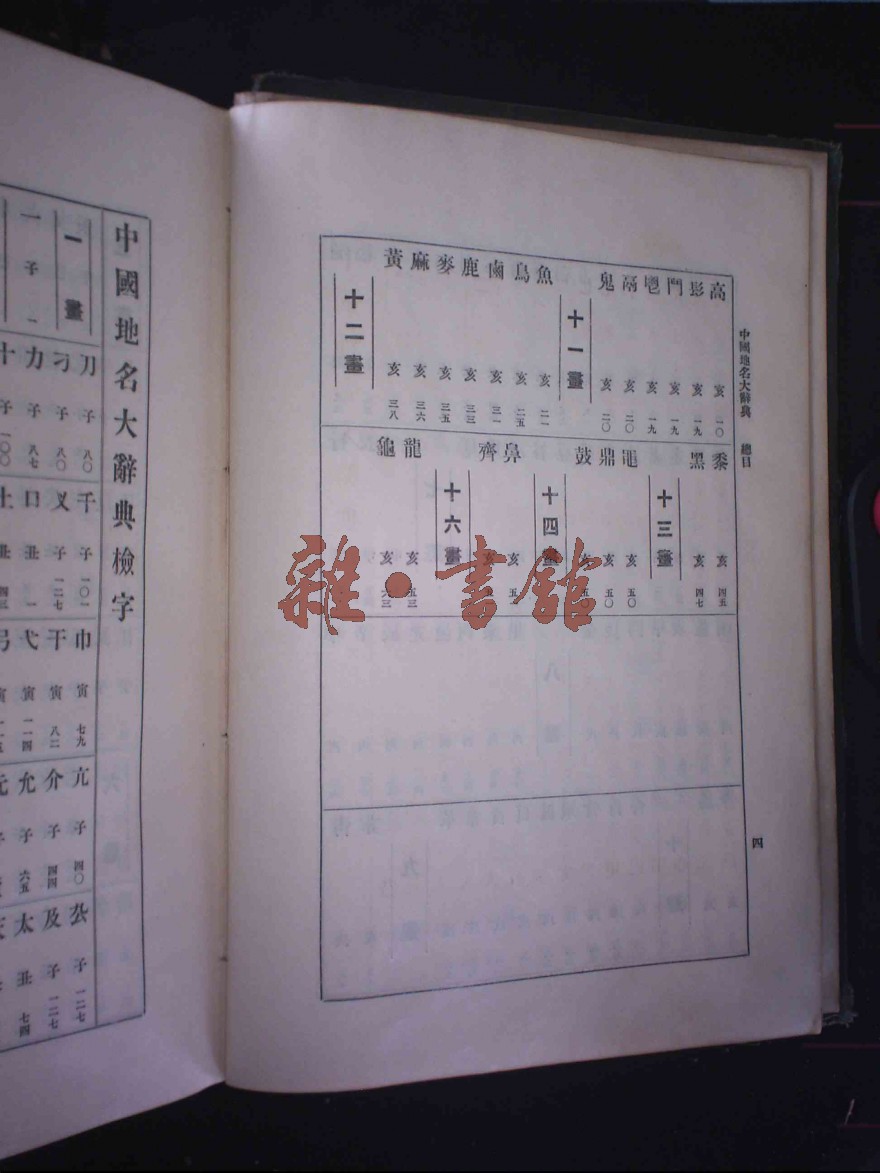 中國地名大辭典　總目
四
高 亥 一〇
髟 亥 一九
鬥 亥 一九
鬯 亥 一九
鬲 亥 二〇
鬼 亥 二〇
十一畫
魚 亥 二一
鳥 亥 二五
鹵 亥 三一
鹿 亥 三三
麥 亥 三五
麻 亥 三六
黃 亥 三八
十二畫
黍 亥 四五
黑 亥 四七
十三畫
黽 亥 五〇
鼎 亥 五〇
鼓 亥 五〇
十四畫
鼻 亥
齊 亥
十六畫
龍 亥 五三
龜 亥 六三
中國地名大辭典檢字
一畫
一 子 一
刀 子 八〇
刁 子 八〇
力 子 八七
十 子 一〇〇
千 子 一〇一
叉 子 一二七
口 丑 一
土 丑
巾 寅 七九
干 寅 八二
弋 寅 一一四
弓 寅
亢 子 四〇
介 子 四四
允 子 六五
元
公 子 一二七
及 子 一二七
太 丑 七四
雜·書館